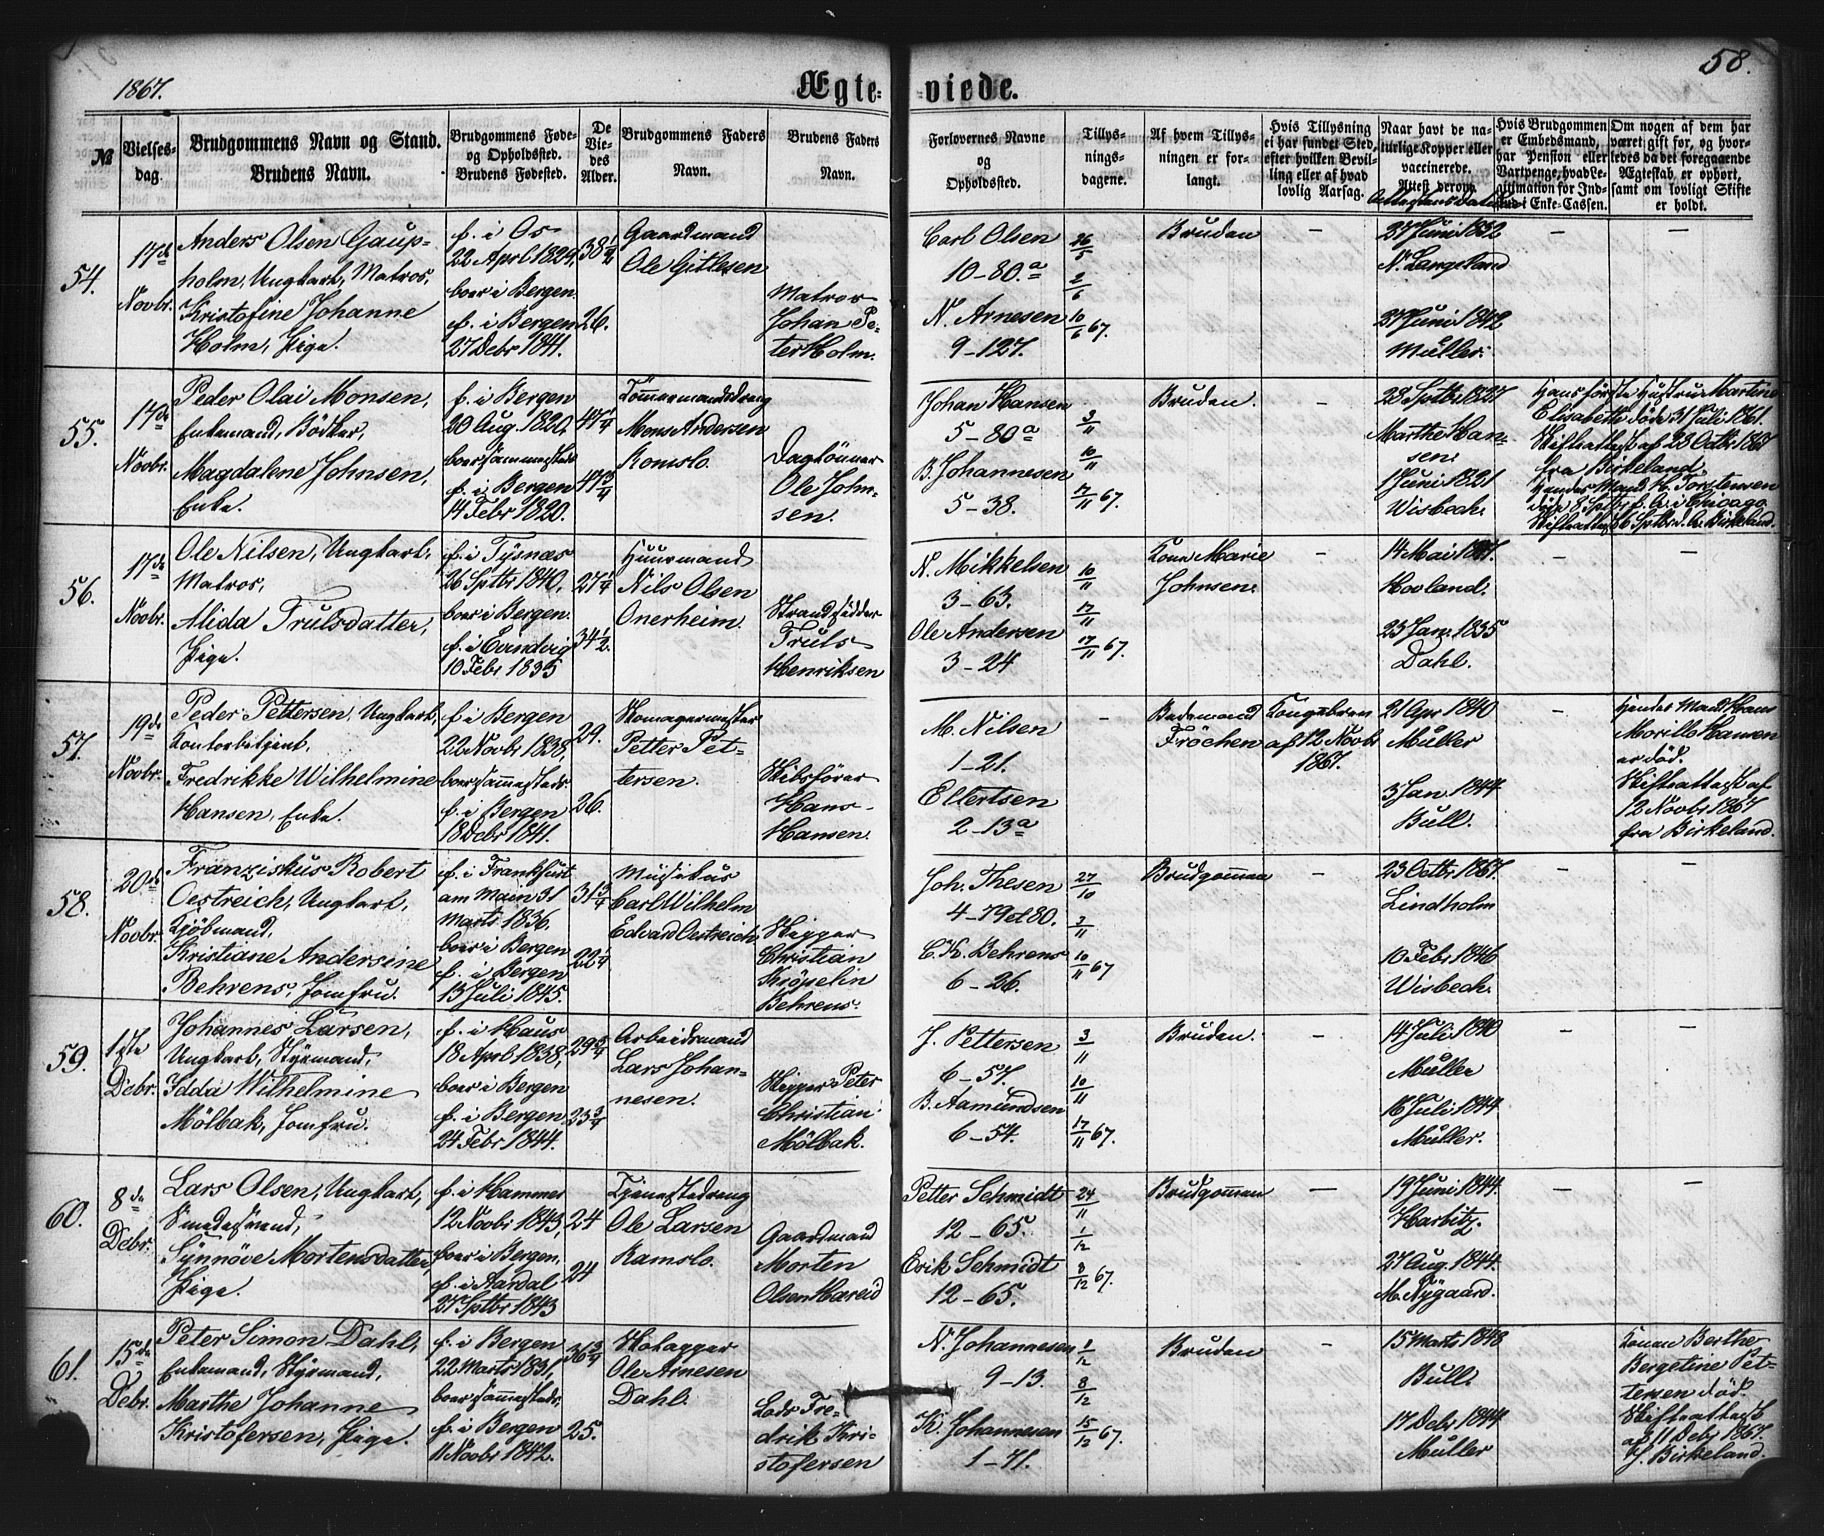 1867.
Ægteviede.
58.
№
Vielsesdag.
Brudgommens Navn og Stand.
Brudens Navn.
Brudgommens Føde- og Opholdssted.
Brudens Fødested.
De Viedes Alder.
Brudgommens Faders Navn.
Brudens Faders Navn.
Forlovernes Navne og Opholdssted.
Tillysningsdagerne.
Af hvem Tillysningen er forlangt.
Hvis Tillysning ei har fundet Sted, efter hvilken Bevilling eller af hvad lovlig Aarsag.
Naar havt de naturlige Kopper eller vaccinerede. Attest derom.
Hvis Brudgommen er Embedsmand, har Pension eller Vartpenge, hvad Legitimation for Indskud i Enke-Cassen.
Om nogen af dem har været gift før, og hvorledes da det foregaaende Ægteskab er ophørt, samt om lovligt Skifte er holdt.
54.
17de
Novbr.
Anders Olsen Gaup-
holm, Ungkarl, Matros,
Kristofine Johanne
Holm, Pige.
f. i Os
22 Aprl 1829,
boer i Bergen
f. i Bergen
27 Debr 1841.
38 1/2
26.
Gaardmand
Ole Gitlesen
Matros
Johan Pe-
ter Holm.
Carl Olsen
10-80.a
N. Arnesen
9-127.
26/5
2/6
10/6 67.
Bruden
-
27 Juni 1832
N. Langeland
27 Juni 1842
Müller.
-
-
55.
17de
Novbr.
Peder Olai Monsen,
Enkemand, Bödker,
Magdalene Johnsen,
Enke.
f. i Bergen
20 Aug. 1820,
boer sammesteds
f. i Bergen
14 Febr 1820.
47 1/4
47 3/4
Tömmermandsdreng
Mons Andersen
Romslo.
Daglönner
Ole John-
sen.
Johan Hansen
5-80a
B. Johannesen
5-38.
3/11
10/11
17/11 67.
Bruden.
-
28 Septbr 1827
Marthe Han-
sen.
1 Juni 1821
Wisbech.
Hans förste Hustru Martine
Elisabeth döde 31 Juli 1861.
Skifteattest af 28 Octbr. 1867
fra Birkeland.
Hendes Mand H. Torstensen
döde 8 Septbr f. A. i Chicago
Skifteattest 6 Septbr d. A. Birkeland.
56.
17de
Novbr.
Ole Nilsen, Ungkarl,
Matros,
Alida Trulsdatter,
Pige.
f. i Tysnæs
26 Septbr 1840,
boer i Bergen.
f. i Evindvig
10 Febr 1835
27 1/4
34 1/2.
Huusmand
Nils Olsen
Onerheim
Strandsidder
Truls
Henriksen
N. Mikkelsen
3-63.
Ole Andersen
3-24
10/11
17/11
17/11 67.
Kone Marie
Johnsen.
-
14 Mai 1867.
Hovland.
23 Jan. 1835
Dahl.
-
-
57.
19de
Novbr.
Peder Pettersen, Ungkarl,
Kontorbetjent,
Fredrikke Wilhelmine
Hansen, Enke.
f. i Bergen
22 Novbr 1838,
boer sammesteds.
f. i Bergen
18 Debr 1841.
29.
26.
Skomagermester
Petter Pet-
tersen.
Skibsförer
Hans
Hansen.
M. Nilsen
1-21.
Ellertsen
2-13a
-
Bedemand
Fröchen
Kongebrev
af 12 Novbr
1867.
21 Apr 1840
Müller
3 Jan. 1844
Bull.
-
Hendes Mand Hans
Morillo Hansen
er död.
Skifteattest af
12 Novbr 1867
fra Birkeland.
58.
20de
Novbr.
Franziskus Robert
Oestreich, Ungkarl,
Kjöbmand,
Kristiane Andersine
Behrens, Jomfru.
f. i Frankfurt
am Main 31
Marts 1836,
boer i Bergen
f. i Bergen
13 Juli 1845.
31 3/4
22 1/4
Musikus
Carl Wilhelm
Edvard Oestreich
Skipper
Christian
Kröpelin
Behrens.
Joh. Thesen
4-79 et 80.
C. K. Behrens
6-26.
27/10
3/11
10/11 67
Brudgommen
-
23 Octbr. 1867.
Lindholm
10 Febr 1846
Wisbech.
-
-
59.
1ste
Debr.
Johannes Larsen,
Ungkarl, Styrmand,
Idda Wilhelmine
Mölbak, Jomfru.
f. i Haus
18 Aprl 1838,
boer i Bergen
f. i Bergen
24 Febr 1844.
29 3/4
23 3/4
Arbeidsmand
Lars Johan-
nesen.
Skipper Peter
Christian
Mölbak.
J. Pettersen
6-57.
B. Aamundsen
6-54.
3/11
10/11
17/11 67.
Bruden.
-
14 Juli 1840
Müller
16 Juli 1844
Müller.
-
-
60.
8de
Debr.
Lars Olsen, Ungkarl,
Smedesvend,
Synnöve Mortensdatter,
Pige.
f. i Hammer
12 Novbr 1843,
boer i Bergen,
f. i Aardal
27 Septbr 1843
24
24
Tjenestedreng
Ole Larsen
Ramslo.
Gaardmand
Morten
Olsen Hareid
Petter Schmidt
12-65.
Erik Schmidt
12-65.
24/11
1/12
8/12 67.
Brudgommen
-
19 Juni 1844.
Harbitz.
27 Aug. 1844.
M. Nygaard.
-
-
61.
15de
Debr.
Peter Simon Dahl,
Enkemand, Styrmand,
Marthe Johanne
Kristofersen, Pige.
f. i Bergen
22 Marts 1831,
boer sammesteds,
f. i Bergen
11 Novbr 1842.
36 3/4
25.
Ole Arnesen
Dahl.
Lods Fre-
drik Kri-
stofersen
N. Johannesen
9-13.
K. Johannesen
1-71.
1/12
8/12
15/12 67.
Bruden
-
15 Marts 1848
Bull.
17 Debr. 1844
Müller
-
Konen Berthe
Bergetine Pet-
tersen död.
Skifteattest
af 11 Debr 1867.
f. Birkeland.